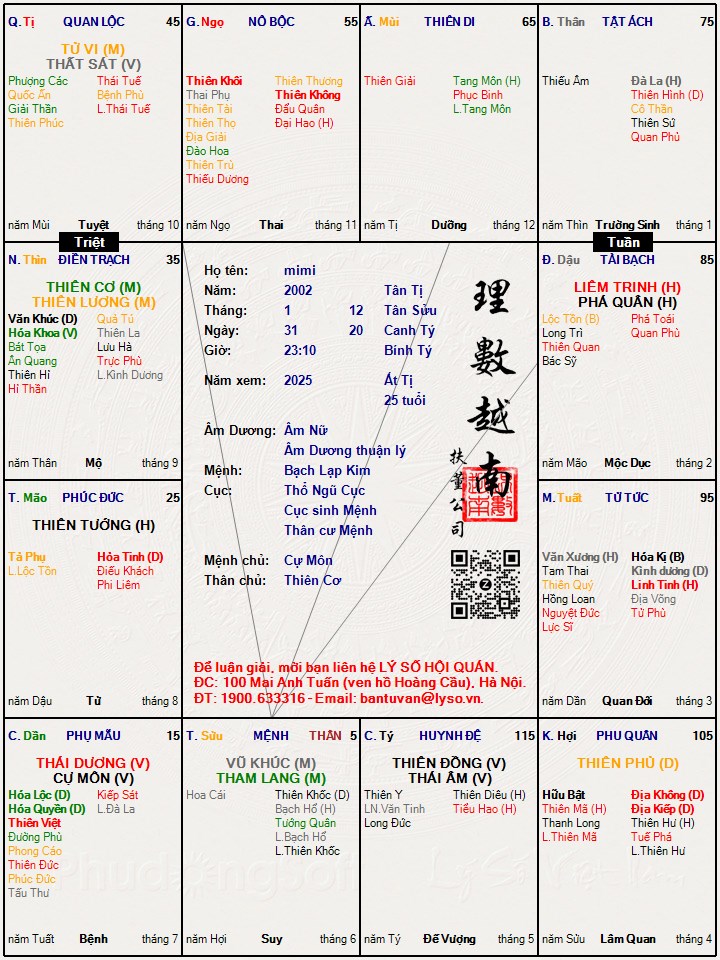 Q. Tị QUAN LỘC 45
TỬ VI (M)
THẤT SÁT (V)
Phượng Các Thái Tuế
Quốc Ấn Bệnh Phù
Giải Thần L.Thái Tuế
Thiên Phúc
năm Mùi Tuyệt tháng 10
G. Ngọ NÔ BỘC 55
Thiên Khôi Thiên Thương
Thai Phụ Thiên Không
Thiên Tài Đẩu Quân
Thiên Thọ Đại Hao (H)
Địa Giải
Đào Hoa
Thiên Trù
Thiếu Dương
năm Ngọ Thai tháng 11
Ấ. Mùi THIÊN DI 65
Thiên Giải Tang Môn (H)
Phục Binh
L.Tang Môn
năm Tị Dưỡng tháng 12
B. Thân TẬT ÁCH 75
Thiếu Âm Đà La (H)
Thiên Hình (D)
Cô Thần
Thiên Sứ
Quan Phủ
năm Thìn Trường Sinh tháng 1
Triệt
Tuần
N. Thìn ĐIỀN TRẠCH 35
THIÊN CƠ (M)
THIÊN LƯƠNG (M)
Văn Khúc (D) Quả Tú
Hóa Khoa (V) Thiên La
Bát Tọa Lưu Hà
Ân Quang Trực Phù
Thiên Hỉ L.Kình Dương
Hỉ Thần
năm Thân Mộ tháng 9
Họ tên: mimi
Năm: 2002 Tân Tị
Tháng: 1 12 Tân Sửu
Ngày: 31 20 Canh Tý
Giờ: 23:10 Bính Tý
Năm xem: 2025 Ất Tị
25 tuổi
Âm Dương: Âm Nữ
Âm Dương thuận lý
Mệnh: Bạch Lạp Kim
Cục: Thổ Ngũ Cục
Cục sinh Mệnh
Thân cư Mệnh
Mệnh chủ: Cự Môn
Thân chủ: Thiên Cơ
理
數
越
南
扶
董
公
司
Để luận giải, mời bạn liên hệ LÝ SỐ HỘI QUÁN.
ĐC: 100 Mai Anh Tuấn (ven hồ Hoàng Cầu), Hà Nội.
ĐT: 1900.633316 - Email: bantuvan@lyso.vn.
Đ. Dậu TÀI BẠCH 85
LIÊM TRINH (H)
PHÁ QUÂN (H)
Lộc Tồn (B) Phá Toái
Long Trì Quan Phù
Thiên Quan
Bác Sỹ
năm Mão Mộc Dục tháng 2
T. Mão PHÚC ĐỨC 25
THIÊN TƯỚNG (H)
Tả Phụ Hỏa Tinh (D)
L.Lộc Tồn Điếu Khách
Phi Liêm
năm Dậu Tử tháng 8
M. Tuất TỬ TỨC 95
Văn Xương (H) Hóa Kị (B)
Tam Thai Kình dương (D)
Thiên Quý Linh Tinh (H)
Hồng Loan Địa Võng
Nguyệt Đức Tử Phù
Lực Sĩ
năm Dần Quan Đới tháng 3
C. Dần PHỤ MẪU 15
THÁI DƯƠNG (V)
CỰ MÔN (V)
Hóa Lộc (D) Kiếp Sát
Hóa Quyền (D) L.Đà La
Thiên Việt
Đường Phù
Phong Cáo
Thiên Đức
Phúc Đức
Tấu Thư
năm Tuất Bệnh tháng 7
T. Sửu MỆNH THÂN 5
VŨ KHÚC (M)
THAM LANG (M)
Hoa Cái Thiên Khốc (D)
Bạch Hổ (H)
Tướng Quân
L.Bạch Hổ
L.Thiên Khốc
năm Hợi Suy tháng 6
C. Tý HUYNH ĐỆ 115
THIÊN ĐỒNG (V)
THÁI ÂM (V)
Thiên Y Thiên Diêu (H)
LN.Văn Tinh Tiểu Hao (H)
Long Đức
năm Tý Đế Vượng tháng 5
K. Hợi PHU QUÂN 105
THIÊN PHỦ (D)
Hữu Bật Địa Không (D)
Thiên Mã (H) Địa Kiếp (D)
Thanh Long Thiên Hư (H)
L.Thiên Mã Tuế Phá
L.Thiên Hư
năm Sửu Lâm Quan tháng 4